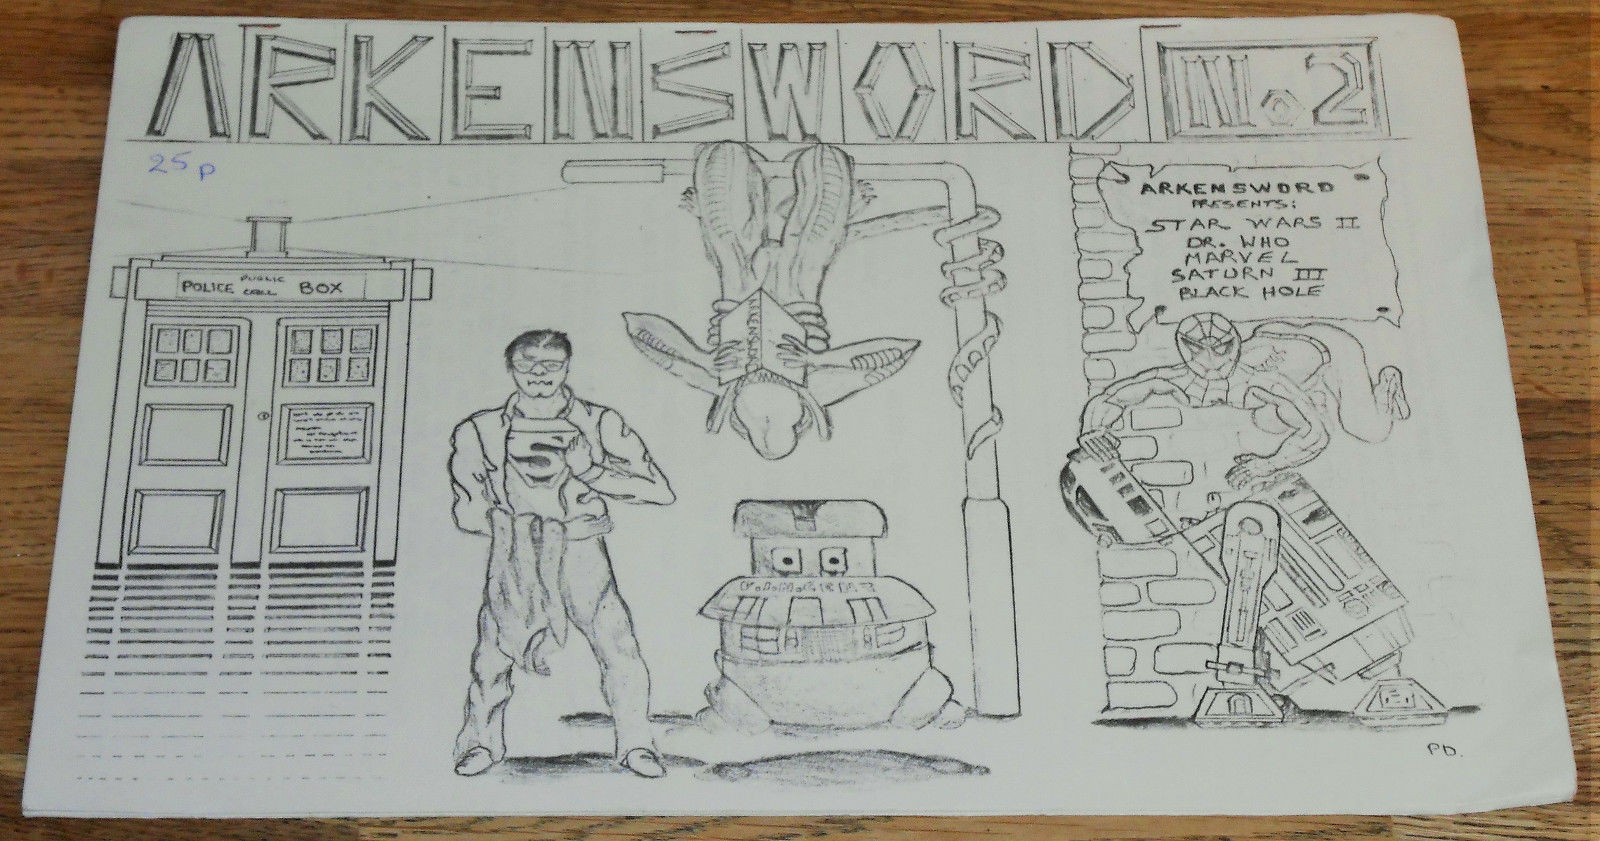 ARKENSWORD N.2
25p
POLICE PUBLIC CALL BOX
ARKENSWORD
PRESENTS:
STAR WARS II
DR. WHO
MARVEL
SATURN III
BLACK HOLE
S
PD.